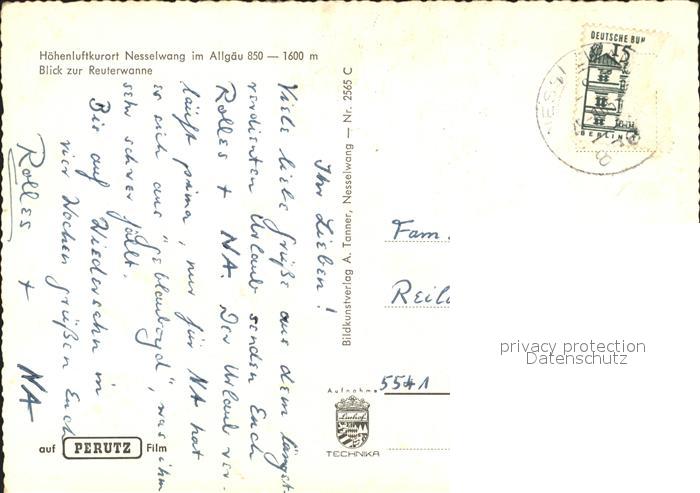 Höhenluftkurort Nesselwang im Allgäu 850 — 1600 m
Blick zur Reuterwanne
Ihr Lieben!
Viele liebe Grüße aus dem längst
verdienten Urlaub senden Euch
Rolles + NA. Der Urlaub ver-
läuft prima, nur für NA hat
er sich aus, was ihm
sehr schwer fällt.
Bis auf Wiedersehn in
vier Wochen grüßen Euch
Rolles + NA
auf PERUTZ Film
Bildkunstverlag A. Tanner, Nesselwang — Nr. 2565 C
DEUTSCHE BUN
15
BERLIN
Fam.
Reil
5541
Aufnahme
Linhof
TECHNIKA
privacy protection
Datenschutz